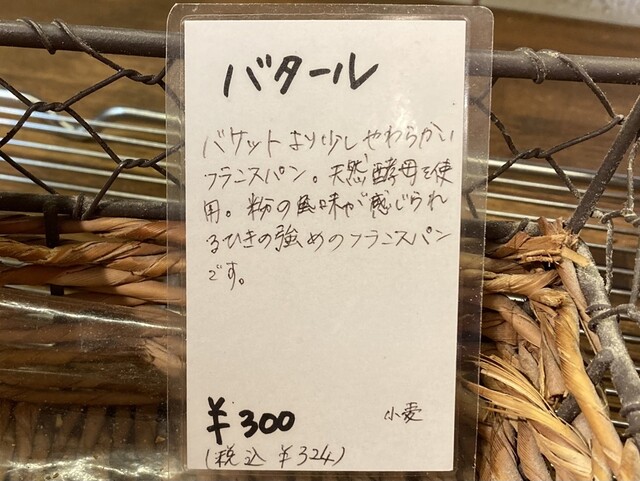 バタール
バケットより少しやわらかい
フランスパン。天然酵母を使
用。粉の風味が感じられ
るひきの強めのフランスパン
です。
¥300
小麦
(税込 ¥324)